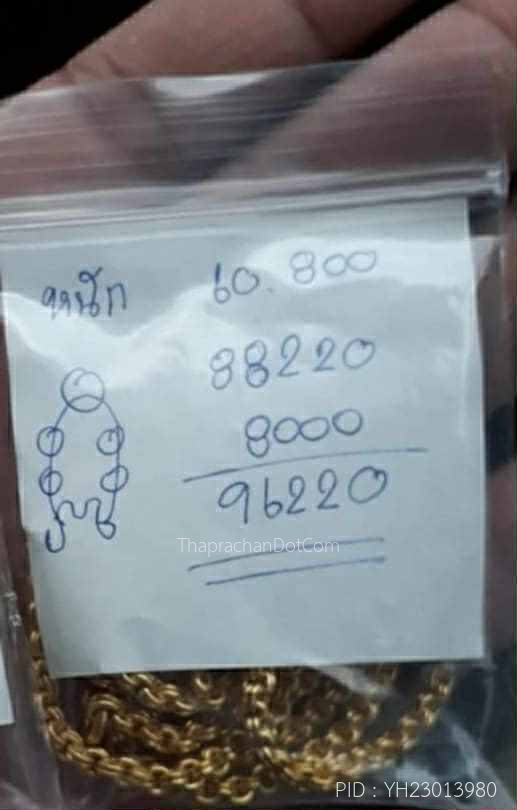 หนัก 60.800
88220
8000
96220
ThaprachanDotCom
PID : YH23013980